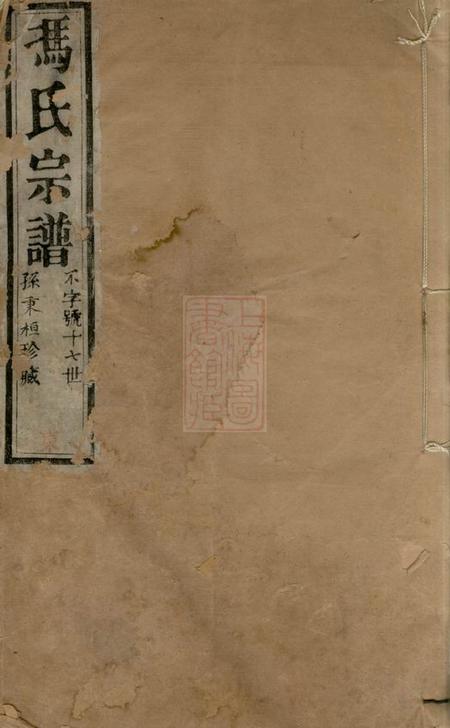 馮氏宗譜
不字號十七世
孫秉桓珍藏
上海圖
書館藏